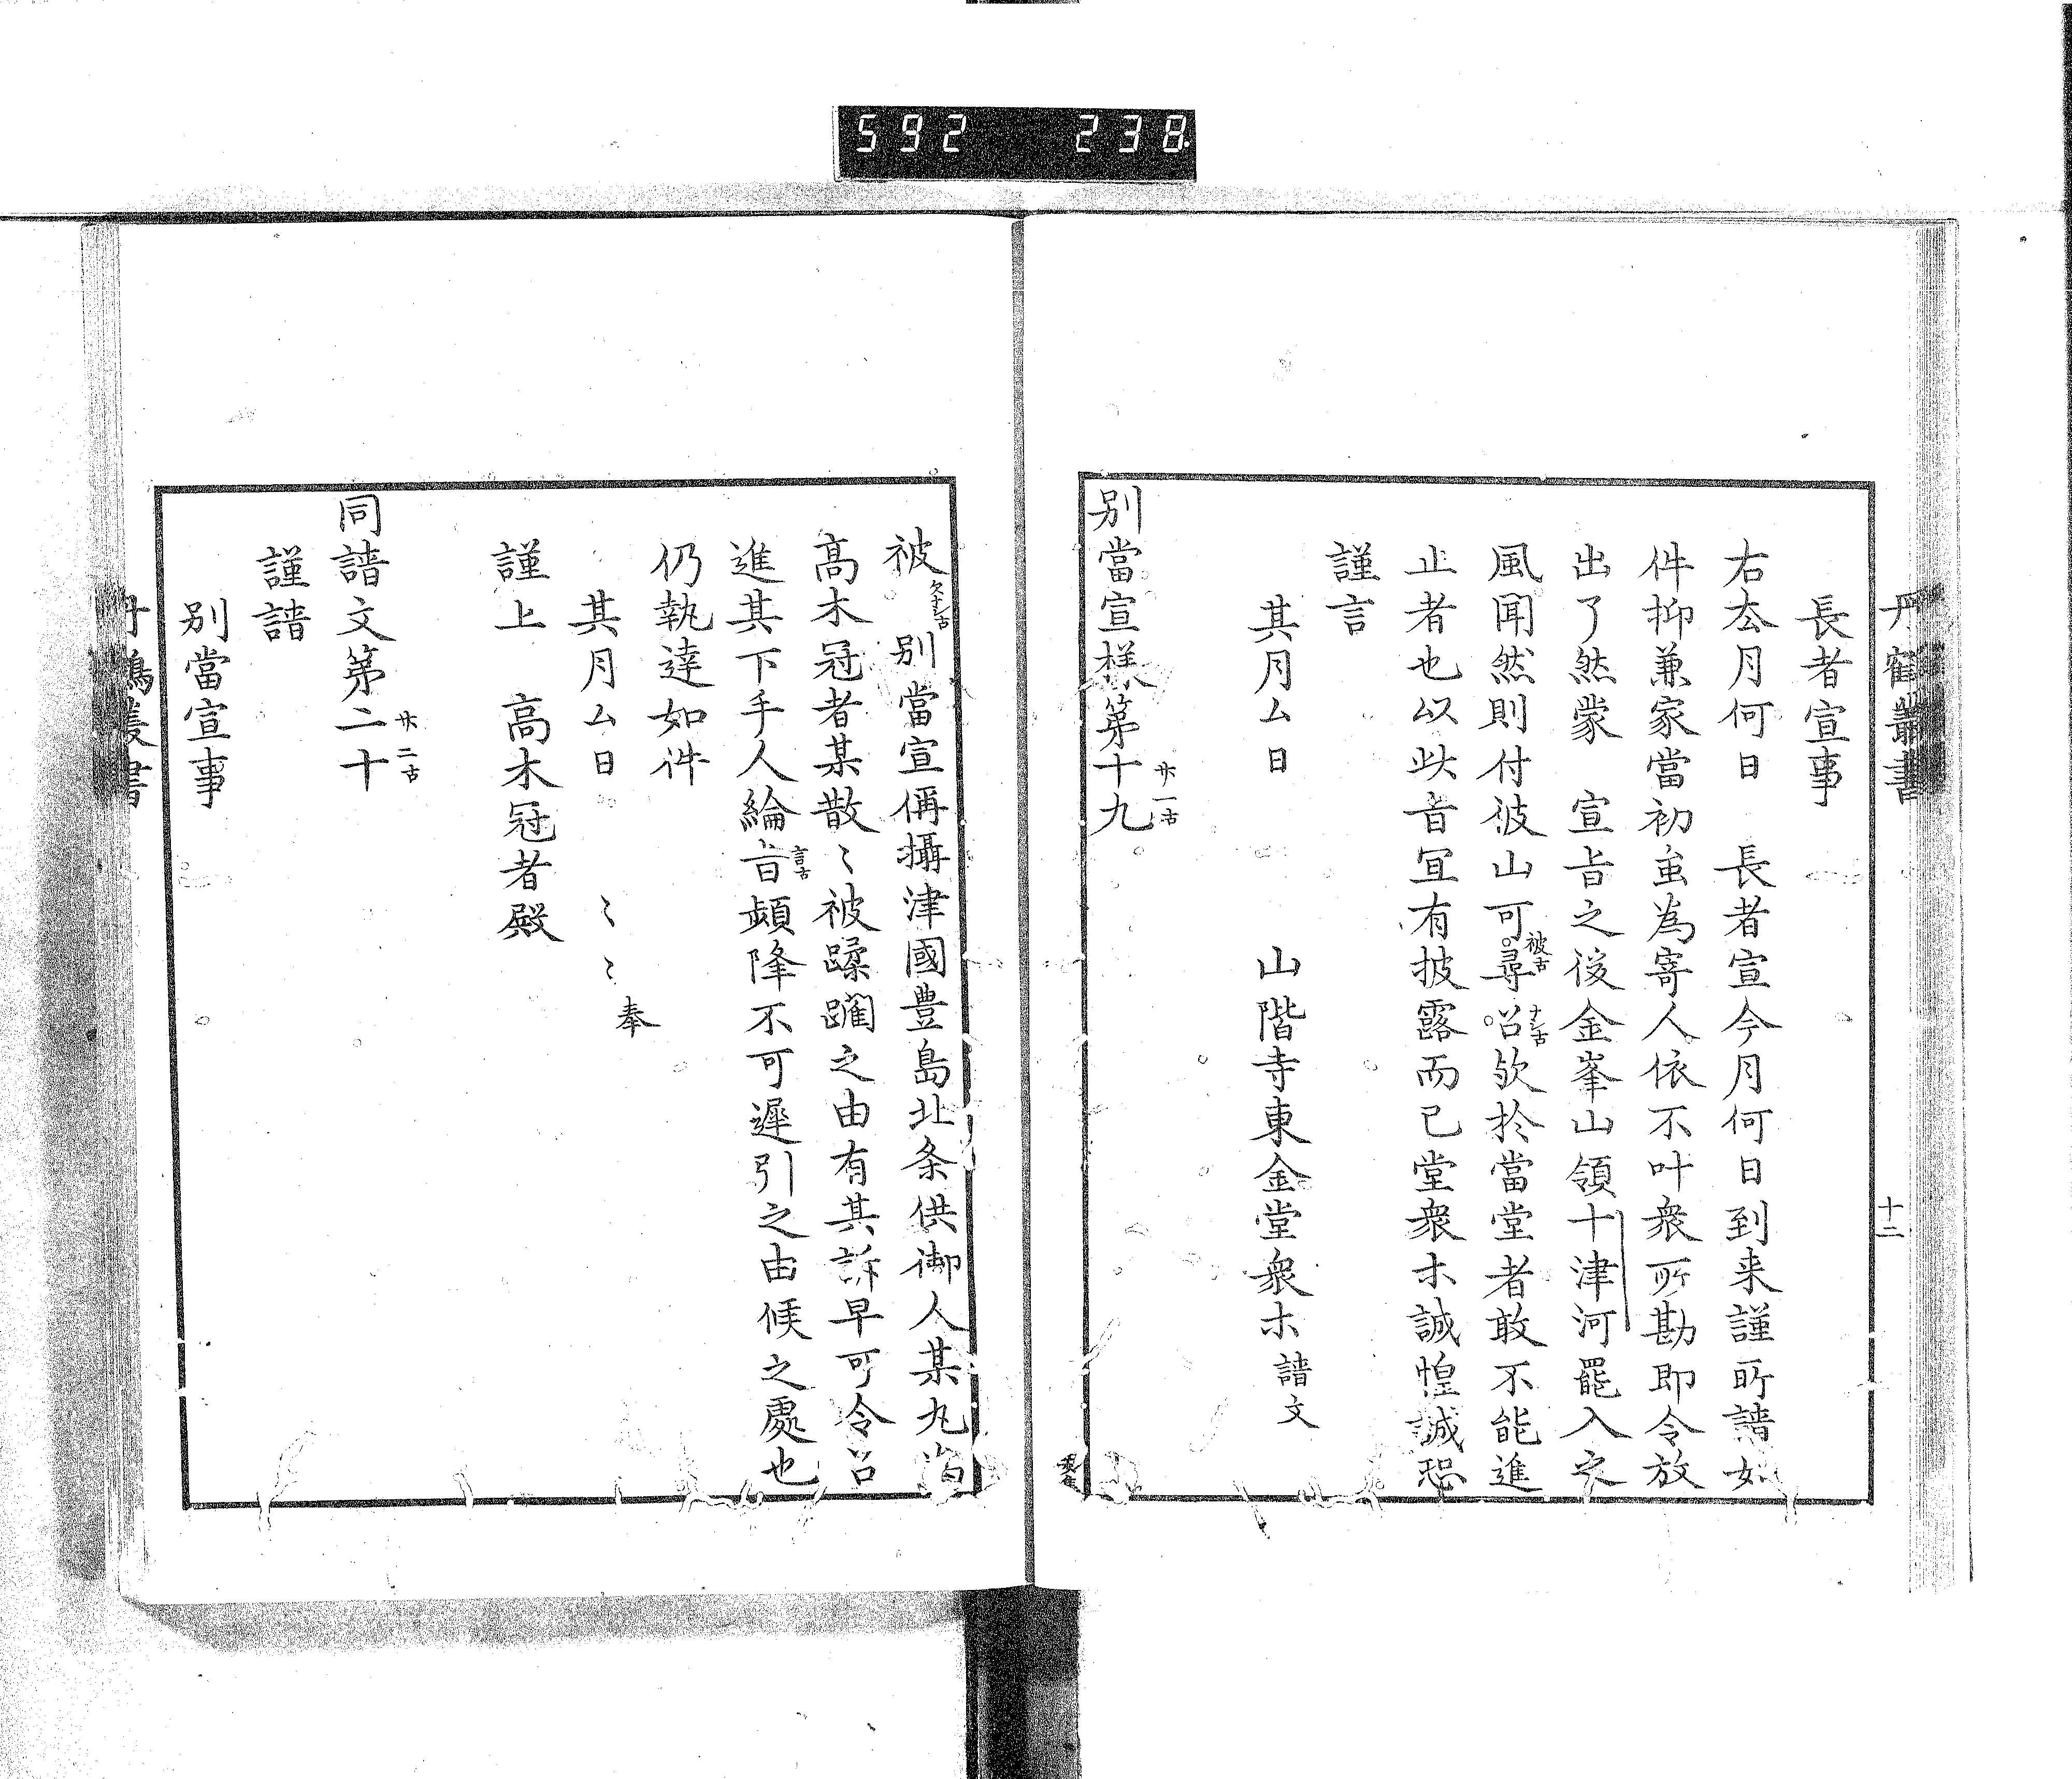 592 238
丹鶴叢書
十二
長者宣事
右去月何日　長者宣今月何日到来謹所請如
件抑兼家當初虽為寄人依不叶衆所勘即令放
出了然蒙　宣旨之後金峯山領十津河罷入之
風聞然則付彼山可尋召欤於當堂者敢不能進
被古
ナシ古
止者也以此旨宜有披露而已堂衆ホ誠惶誠恐
謹言
其月ム日　　山階寺東金堂衆ホ請文
別當宣樣第十九
廾一古
被　別當宣偁攝津國豊島北条供御人某丸為
欠ナシ古
高木冠者某散〻被蹂躙之由有其訴早可令召
進其下手人綸旨頻降不可遲引之由候之處也
言古
仍執達如件
其月ム日　　〻〻奉
謹上　高木冠者殿
同請文第二十
廾二古
謹請
別當宣事